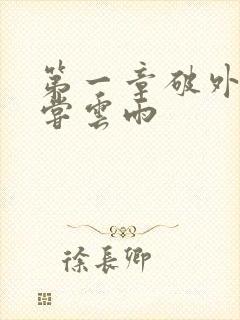 第一章破外
嘗雲雨
徐長卿